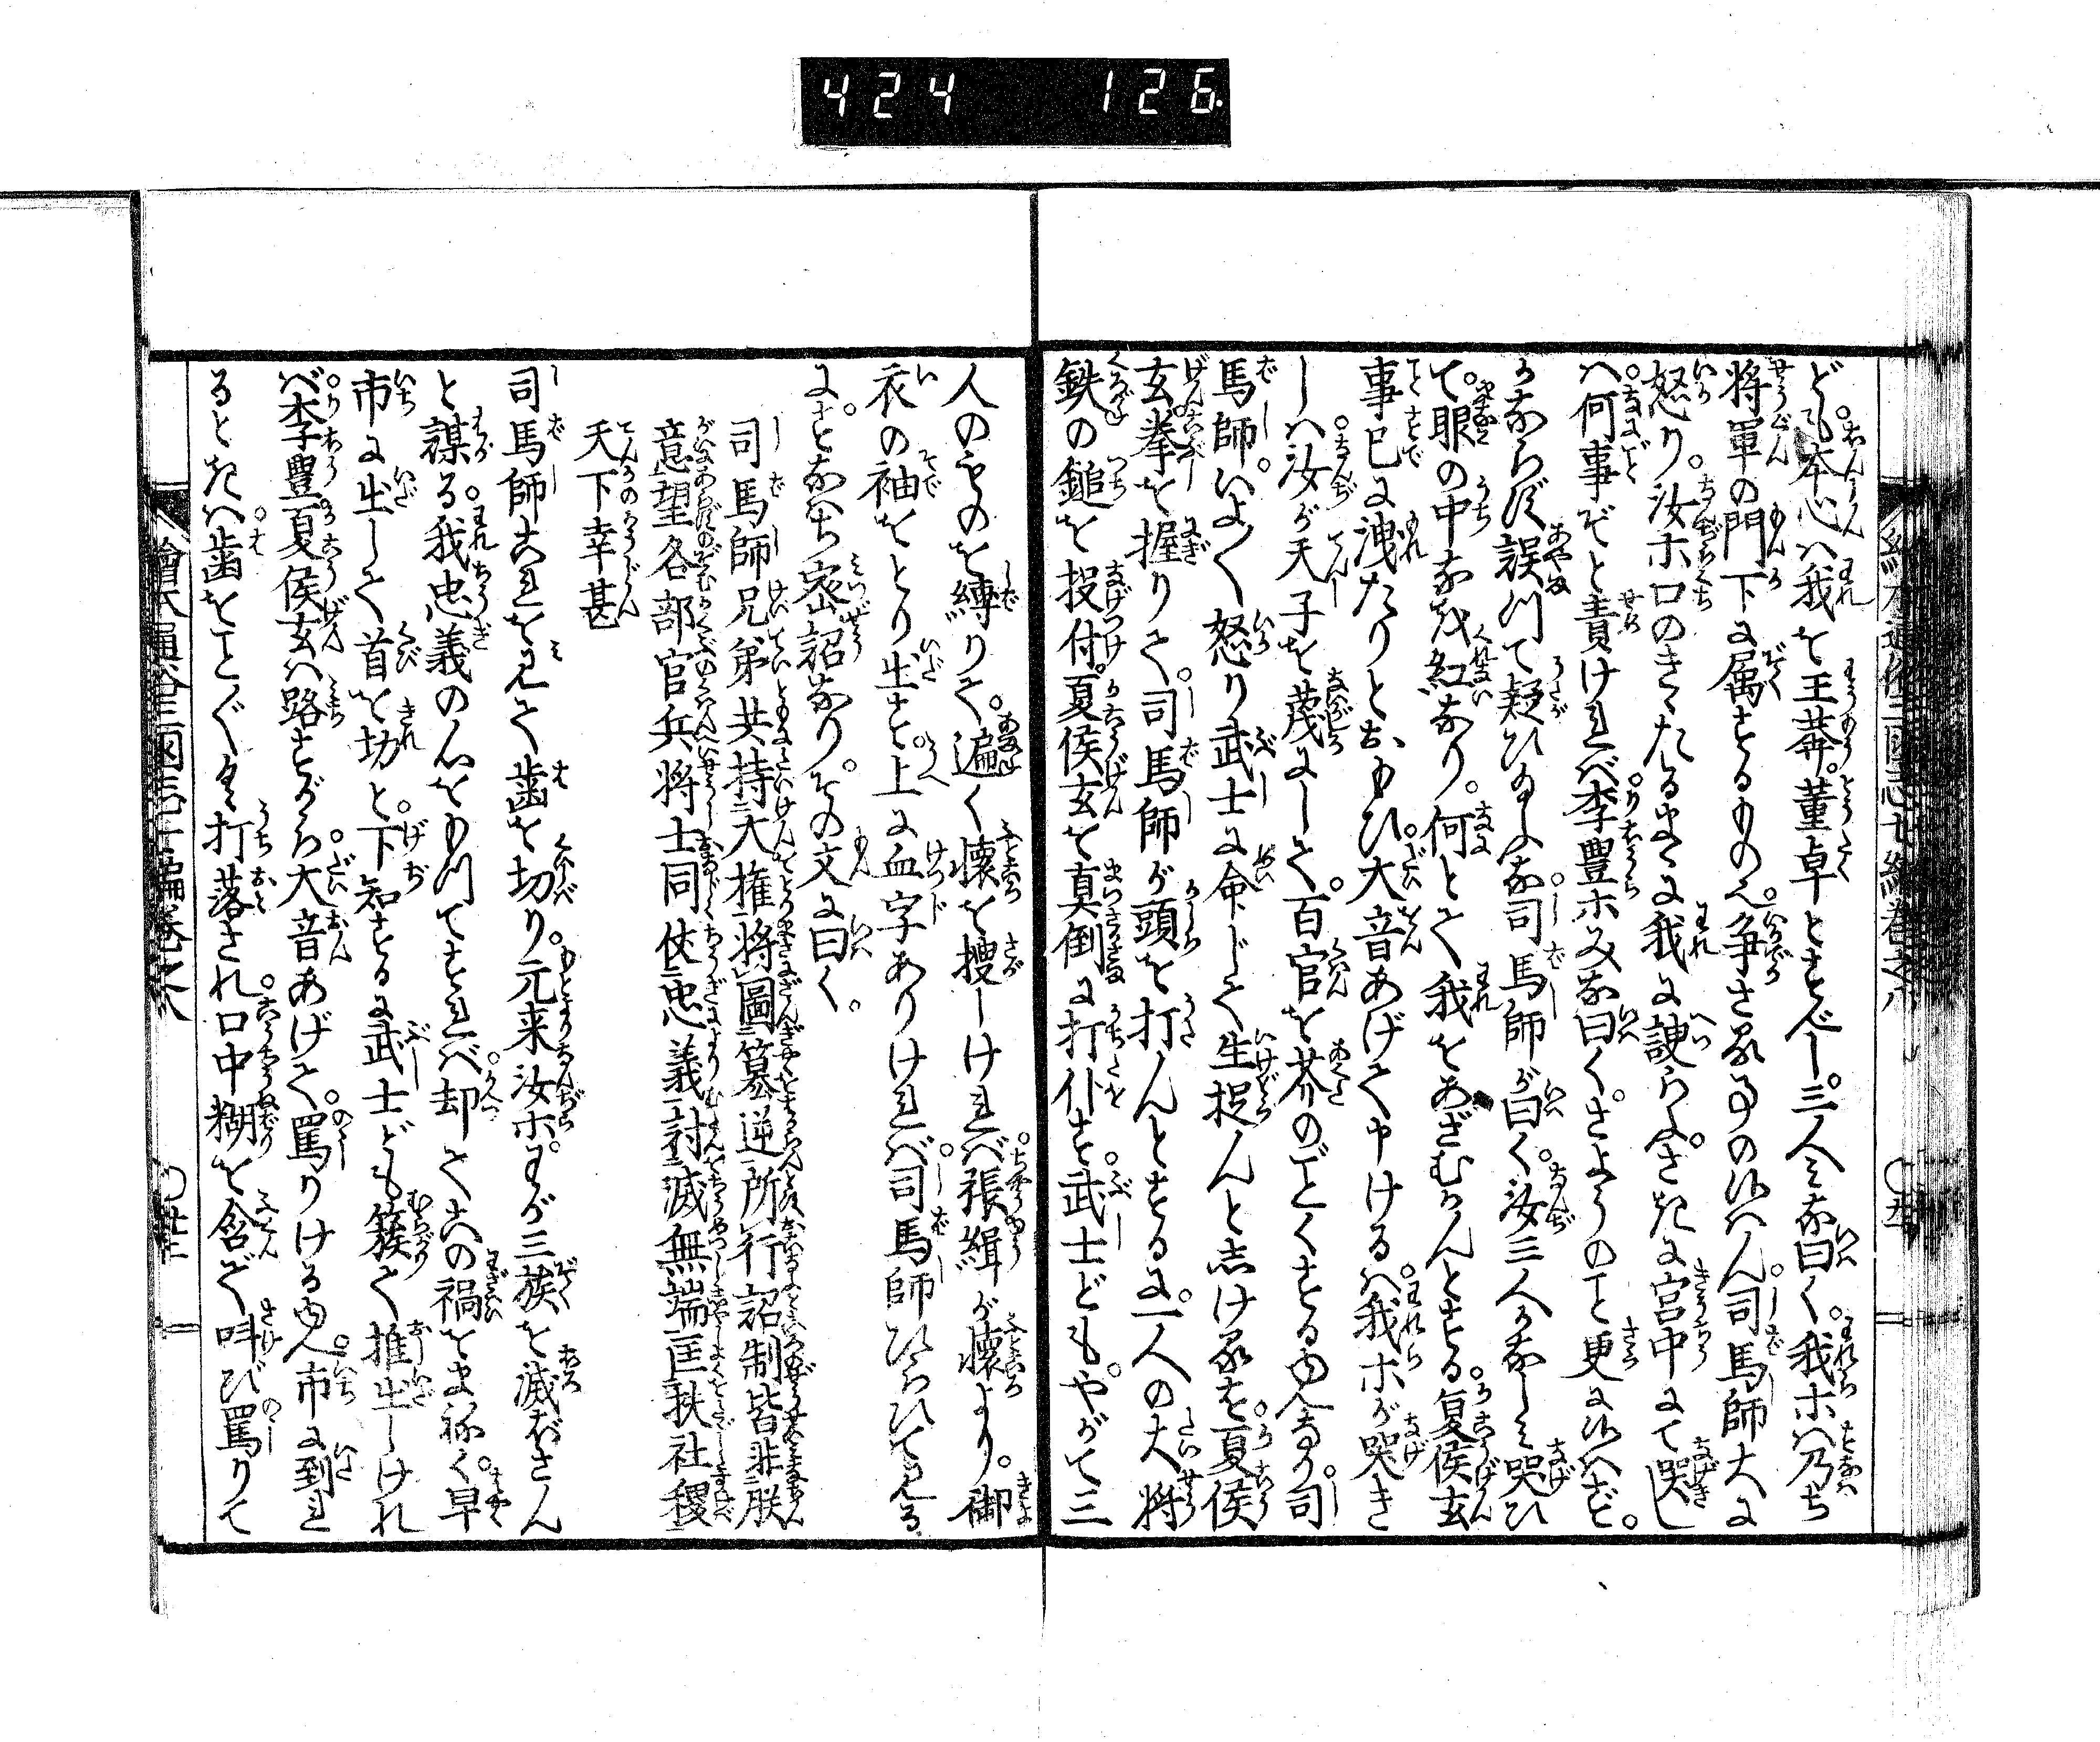 424 126
ども。本心ハ我を王莽董卓とすべし。三人みな曰く。我ホハ乃ち
将軍の門下に属するもの也。争さる事の候ハん。司馬師大に
怒り。汝ホ口のきゝたるまゝに我に諛らふ。さきに宮中にて哭し
ハ何事ぞと責けれバ李豊ホみな曰く。さようのこと更に候ハず。
かならず誤つて疑ひ給ふな司馬師が曰く。汝三人かなしみ哭ひ
て。眼の中なを紅なり。何とて我をあざむかんとする。夏侯玄
事已に洩たりとおもひ。大音あげて申けるハ。我ホが哭き
しハ汝が天子を蔑にして。百官を芥のごとくする由へなり。司
馬師。いよ〱怒り武士に命じて生捉んとしけるを。夏侯
玄拳を握りて。司馬師が頭を打んとするに。一人の大将
鉄の鎚を投付。夏侯玄を真倒に打仆す。武士ども。やがて三
人のものを縛りて。遍く懐を捜しけれバ。張緝が懐より。御
衣の袖をとり出す。上に血字ありけれバ。司馬師ひらひて見る
に。すなハち密詔なり。その文に曰く。
司馬師兄弟共持大権将圖簒逆所行詔制皆非朕
意望各部官兵将士同仗忠義討滅無端匡扶社稷
天下幸甚
司馬師これを見て歯を切り。元来汝ホ。わが三族を滅ぼさん
と謀る。我忠義の心をもつてすれバ。却てこの禍をまぬく。早
市に出して首を切と。下知するに武士ども簇て推出しけれ
バ。李豊。夏侯玄ハ路すがら。大音あげて。罵りける由へ。市に到
るときハ。歯をことごとく打落され。口中糊を含で叫び罵りて